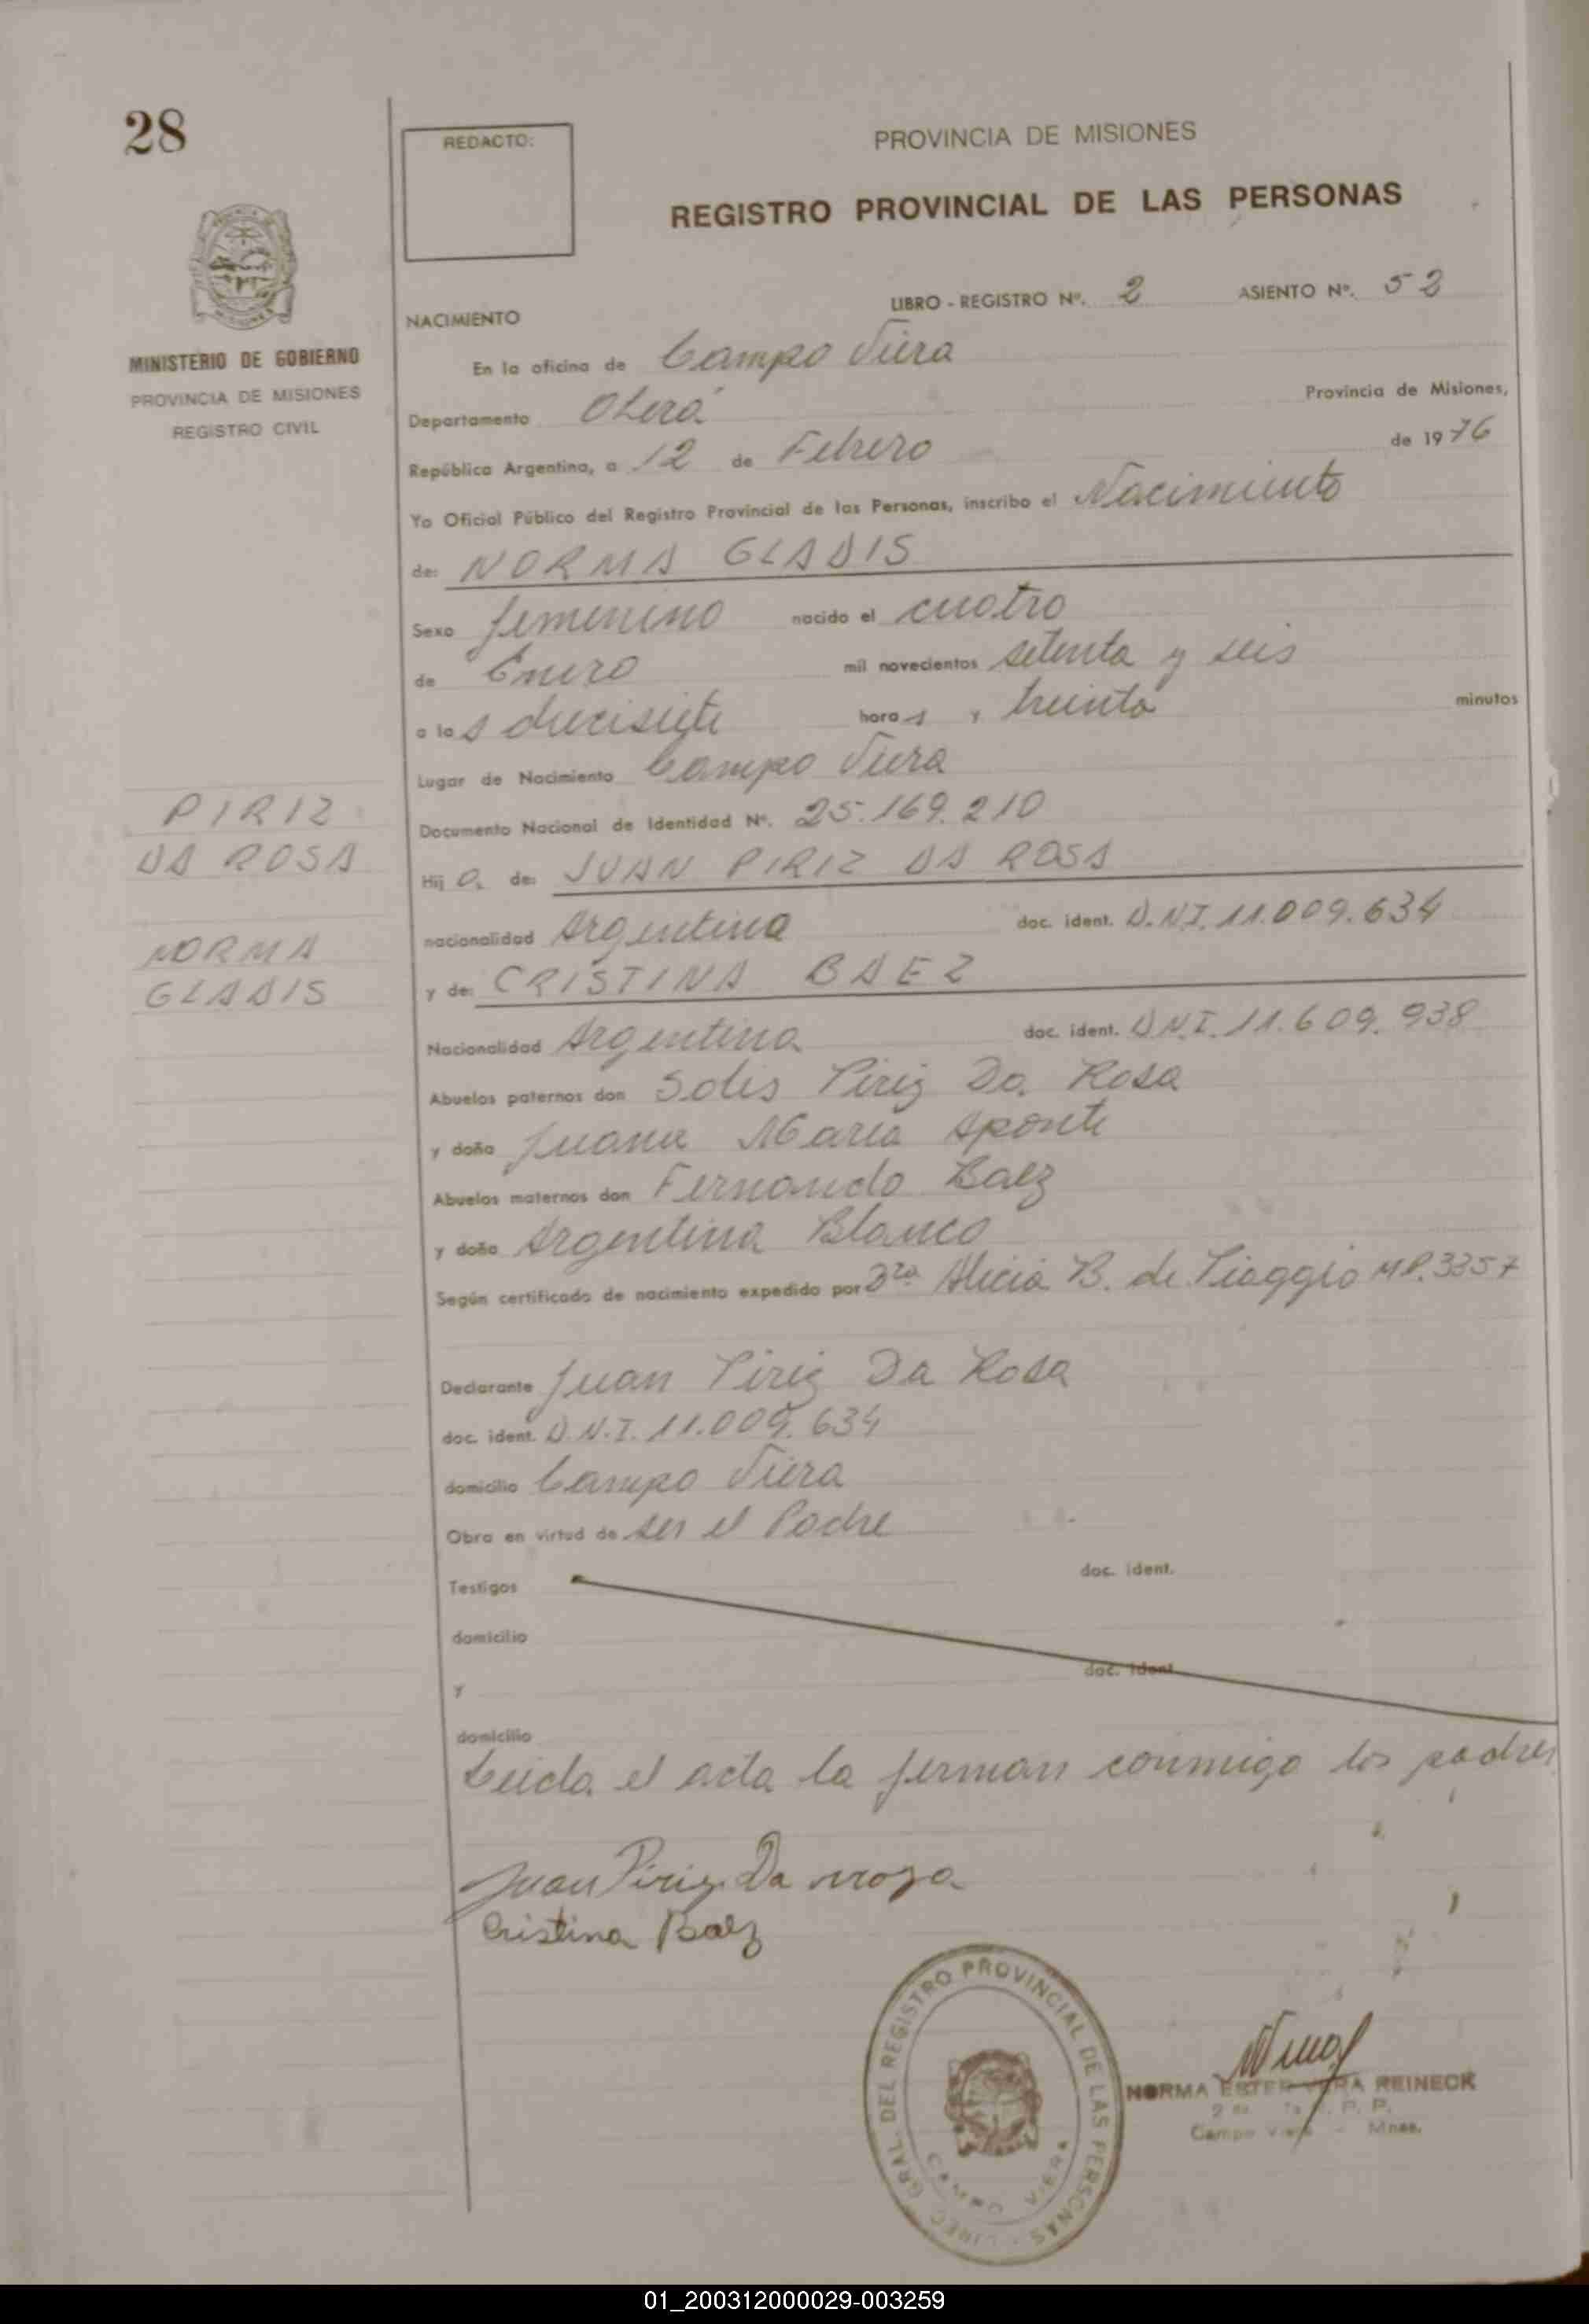 28
REDACTO:
PROVINCIA DE MISIONES
REGISTRO PROVINCIAL DE LAS PERSONAS
LIBRO - REGISTRO Nº. 2 ASIENTO Nº. 52
NACIMIENTO
MINISTERIO DE GOBIERNO
PROVINCIA DE MISIONES
REGISTRO CIVIL
En la oficina de Campo Viera
Departamento Oberá Provincia de Misiones,
República Argentina, a 12 de Febrero de 1976
Yo Oficial Público del Registro Provincial de las Personas, inscribo el Nacimiento
de: NORMA GLADIS
Sexo femenino nacido el cuatro
de Enero mil novecientos setenta y seis
a las diecisiete horas y treinta minutos
Lugar de Nacimiento Campo Viera
Documento Nacional de Identidad Nº. 25.169.210
PIRIZ
DA ROSA
Hija de: JUAN PIRIZ DA ROSA
nacionalidad Argentina doc. ident. D.N.I. 11.009.634
NORMA
GLADIS
y de: CRISTINA BAEZ
Nacionalidad Argentina doc. ident. D.N.I. 11.609.938
Abuelos paternos don Solis Piriz Da Rosa
y doña Juana Maria Aponte
Abuelos maternos don Fernando Baez
y doña Argentina Blanco
Según certificado de nacimiento expedido por Dra Alicia B. de Piaggio M.P. 3357
Declarante Juan Piriz Da Rosa
doc. ident. D.N.I. 11.009.634
domicilio Campo Viera
Obra en virtud de ser el Padre
Testigos doc. ident.
domicilio
y doc. ident.
domicilio
Leida el acta la firman conmigo los padres
Juan Piriz Da rroza
Cristina Baez
DIREC. GRAL. DEL REGISTRO PROVINCIAL DE LAS PERSONAS
CAMPO VIERA
NORMA ESTER VERA REINECK
P. P.
Campo Viera - Mnes.
01_200312000029-003259